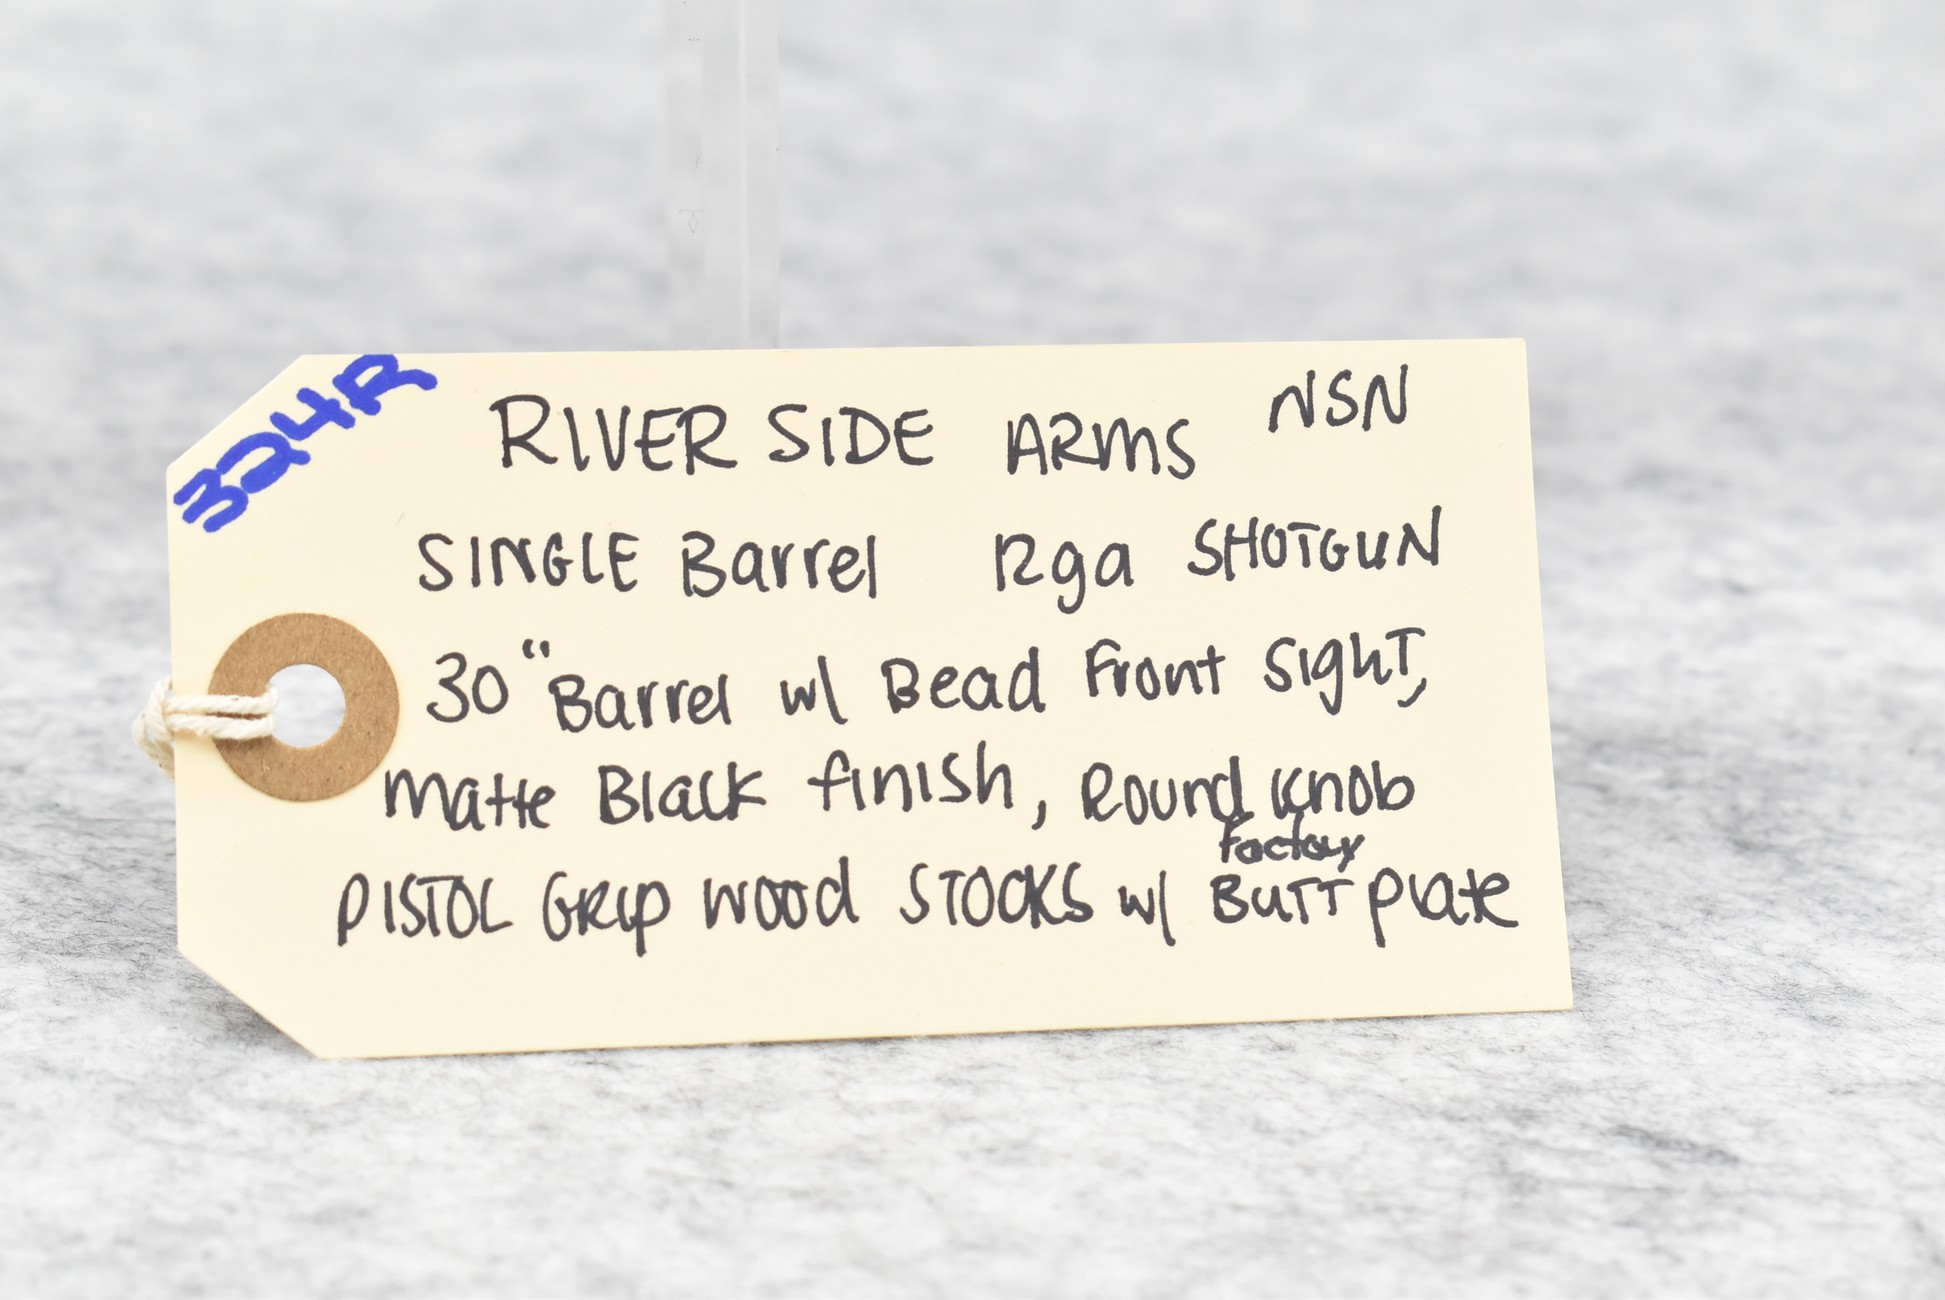 324R
RIVER SIDE ARMS NSN
SINGLE Barrel 12ga SHOTGUN
30" Barrel w/ Bead Front SighT,
Matte Black finish, Round Knob
Factory
PISTOL GRip wood STOCKS w/ BUTT plate